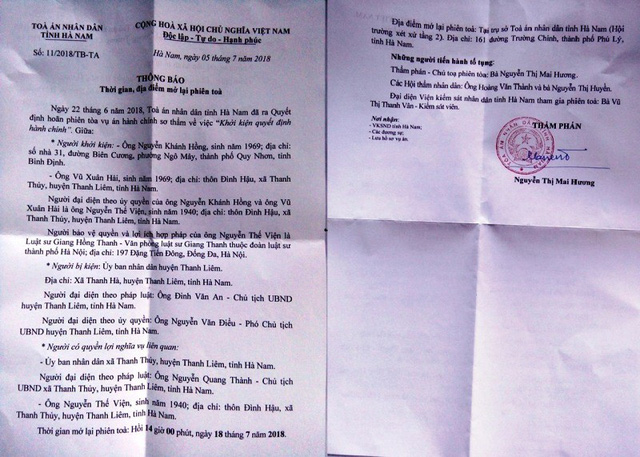 TOÀ ÁN NHÂN DÂN
TỈNH HÀ NAM
Số: 11/2018/TB-TA
CỘNG HOÀ XÃ HỘI CHỦ NGHĨA VIỆT NAM
Độc lập - Tự do - Hạnh phúc
Hà Nam, ngày 05 tháng 7 năm 2018
THÔNG BÁO
Thời gian, địa điểm mở lại phiên toà
Ngày 22 tháng 6 năm 2018, Toà án nhân dân tỉnh Hà Nam đã ra Quyết
định hoãn phiên tòa vụ án hành chính sơ thẩm về việc "Khởi kiện quyết định
hành chính". Giữa:
* Người khởi kiện: - Ông Nguyễn Khánh Hồng, sinh năm 1969; địa chỉ:
số nhà 31, đường Biên Cương, phường Ngô Mây, thành phố Quy Nhơn, tỉnh
Bình Định.
- Ông Vũ Xuân Hải, sinh năm 1969; địa chỉ: thôn Đình Hậu, xã Thanh
Thủy, huyện Thanh Liêm, tỉnh Hà Nam.
Người đại diện theo ủy quyền của ông Nguyễn Khánh Hồng và ông Vũ
Xuân Hải là ông Nguyễn Thế Viện, sinh năm 1940; địa chỉ: thôn Đình Hậu, xã
Thanh Thủy, huyện Thanh Liêm, tỉnh Hà Nam.
Người bảo vệ quyền và lợi ích hợp pháp của ông Nguyễn Thế Viện là
Luật sư Giang Hồng Thanh - Văn phòng luật sư Giang Thanh thuộc đoàn luật sư
thành phố Hà Nội; địa chỉ: 197 Đặng Tiến Đông, Đống Đa, Hà Nội.
* Người bị kiện: Ủy ban nhân dân huyện Thanh Liêm.
Địa chỉ: Xã Thanh Hà, huyện Thanh Liêm, tỉnh Hà Nam.
Người đại diện theo pháp luật: Ông Đinh Văn An - Chủ tịch UBND
huyện Thanh Liêm, tỉnh Hà Nam.
Người đại diện theo ủy quyền: Ông Nguyễn Văn Điều - Phó Chủ tịch
UBND huyện Thanh Liêm, tỉnh Hà Nam.
* Người có quyền lợi nghĩa vụ liên quan:
- Ủy ban nhân dân xã Thanh Thủy, huyện Thanh Liêm, tỉnh Hà Nam.
Người đại diện theo pháp luật: Ông Nguyễn Quang Thành - Chủ tịch
UBND xã Thanh Thủy, huyện Thanh Liêm, tỉnh Hà Nam.
- Ông Nguyễn Thế Viện, sinh năm 1940; địa chỉ: thôn Đình Hậu, xã
Thanh Thủy, huyện Thanh Liêm, tỉnh Hà Nam.
Thời gian mở lại phiên toà: Hồi 14 giờ 00 phút, ngày 18 tháng 7 năm 2018.
Địa điểm mở lại phiên toà: Tại trụ sở Toà án nhân dân tỉnh Hà Nam (Hội
trường xét xử tầng 2). Địa chỉ: 161 đường Trường Chinh, thành phố Phủ Lý,
tỉnh Hà Nam.
Những người tiến hành tố tụng:
Thẩm phán - Chủ toạ phiên tòa: Bà Nguyễn Thị Mai Hương.
Các Hội thẩm nhân dân: Ông Hoàng Văn Thành và bà Nguyễn Thị Huyền.
Đại diện Viện kiểm sát nhân dân tỉnh Hà Nam tham gia phiên toà: Bà Vũ
Thị Thanh Vân - Kiểm sát viên.
Nơi nhận:
- VKSND tỉnh Hà Nam;
- Các đương sự;
- Lưu hồ sơ vụ án.
THẨM PHÁN
Nguyễn Thị Mai Hương